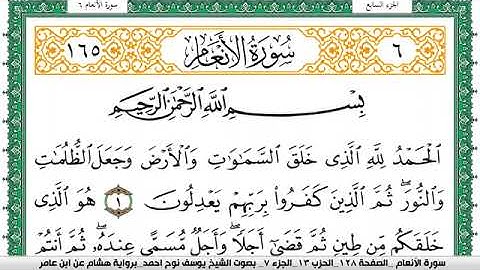 الجزء السابع
سورة الأنعام ٦
٦ سُورَةُ الأَنْعَامِ ١٦٥
بِسْمِ اللَّهِ الرَّحْمَٰنِ الرَّحِيمِ
ٱلۡحَمۡدُ لِلَّهِ ٱلَّذِي خَلَقَ ٱلسَّمَٰوَٰتِ وَٱلۡأَرۡضَ وَجَعَلَ ٱلظُّلُمَٰتِ
وَٱلنُّورَۖ ثُمَّ ٱلَّذِينَ كَفَرُواْ بِرَبِّهِمۡ يَعۡدِلُونَ ١ هُوَ ٱلَّذِي
خَلَقَكُم مِّن طِينٖ ثُمَّ قَضَىٰٓ أَجَلٗاۖ وَأَجَلٞ مُّسَمًّى عِندَهُۥۖ ثُمَّ أَنتُمۡ
سورة الأنعام _الصفحة ١٢٨_ الحزب ١٣_ الجزء ٧_ بصوت الشيخ يوسف نوح احمد_ برواية هشام عن ابن عامر